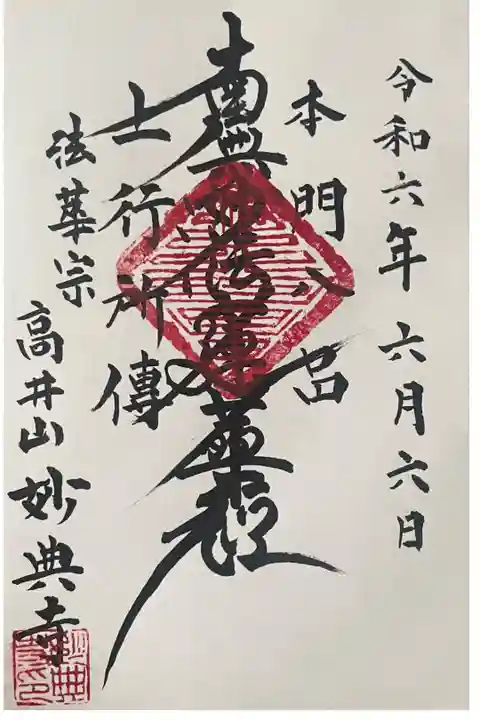 令和六年六月六日
本門八品
南無妙法蓮華経
士行所傳
法華宗
高井山妙典寺